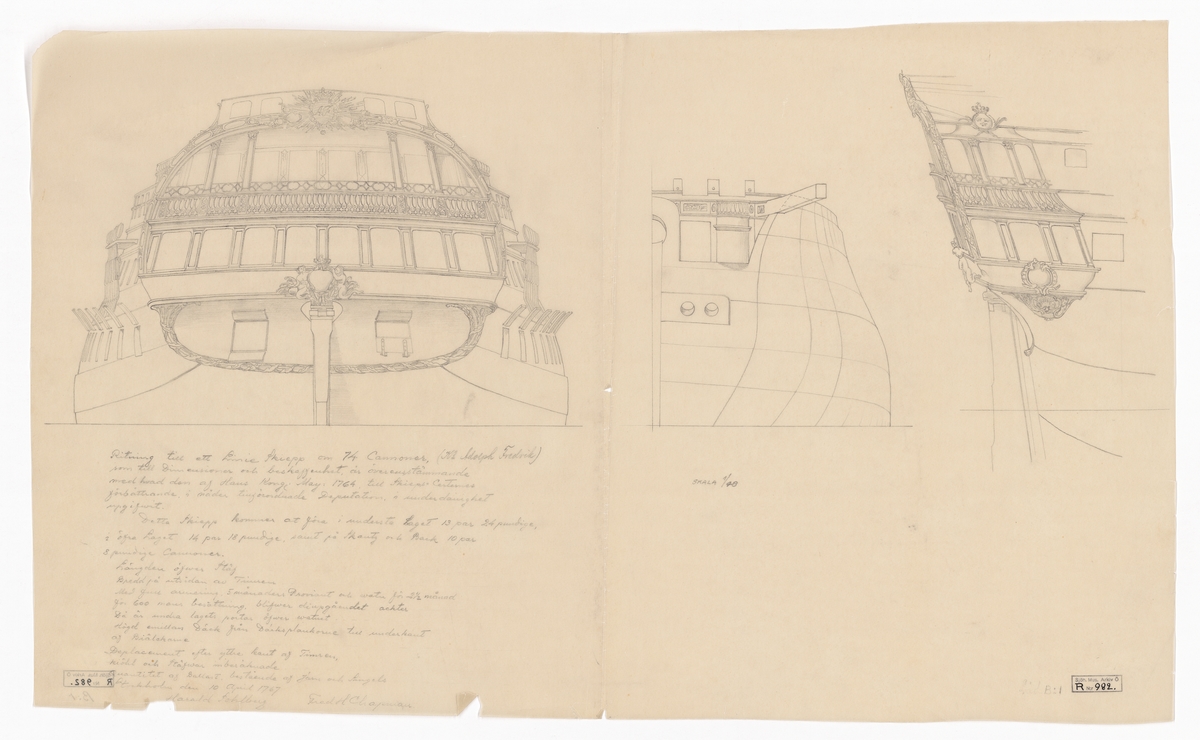 Ritning till ett Linie Skiepp om 74 Cannoner, (Ad. Adolph Fredrik)
som till Dimensioner och beskaffenhet, är öwerensstämmande
med hwad den af Hans Kong. May: 1764, till Skiepps
förbättrande, i nåder Deputation, i underdånighet
uppgiwit.
Detta Skiepp kommer at föra i understa Laget 13 par 24 pundige,
i öfre Laget 14 par 18 pundige, samt på Skantz och Back 10 par
8 pundige Cannoner.
Längden öfwer Stäg
Bredd på utsidan av Timren
Med fulla 5 månaders Proviant och watn för 2½ månad
för 600 mans besättning blifwer djupgåendet achter
Då är undre lagets portar öfwer watnet
Höjd emellan Däck från Däcksplankorne till underkant
af Biälkarne
Deplacement efter yttre kant af Timren,
Kiöhl och Stäfwar
quantitet af Ballast, bestående af Jern och Singels
Stockholm den 10 April 1767
Harald Sohlberg Fredr H Chapman
SKALA 1/48
B:1
Sjöh. Mus. Arkiv Ö
R No: 982.